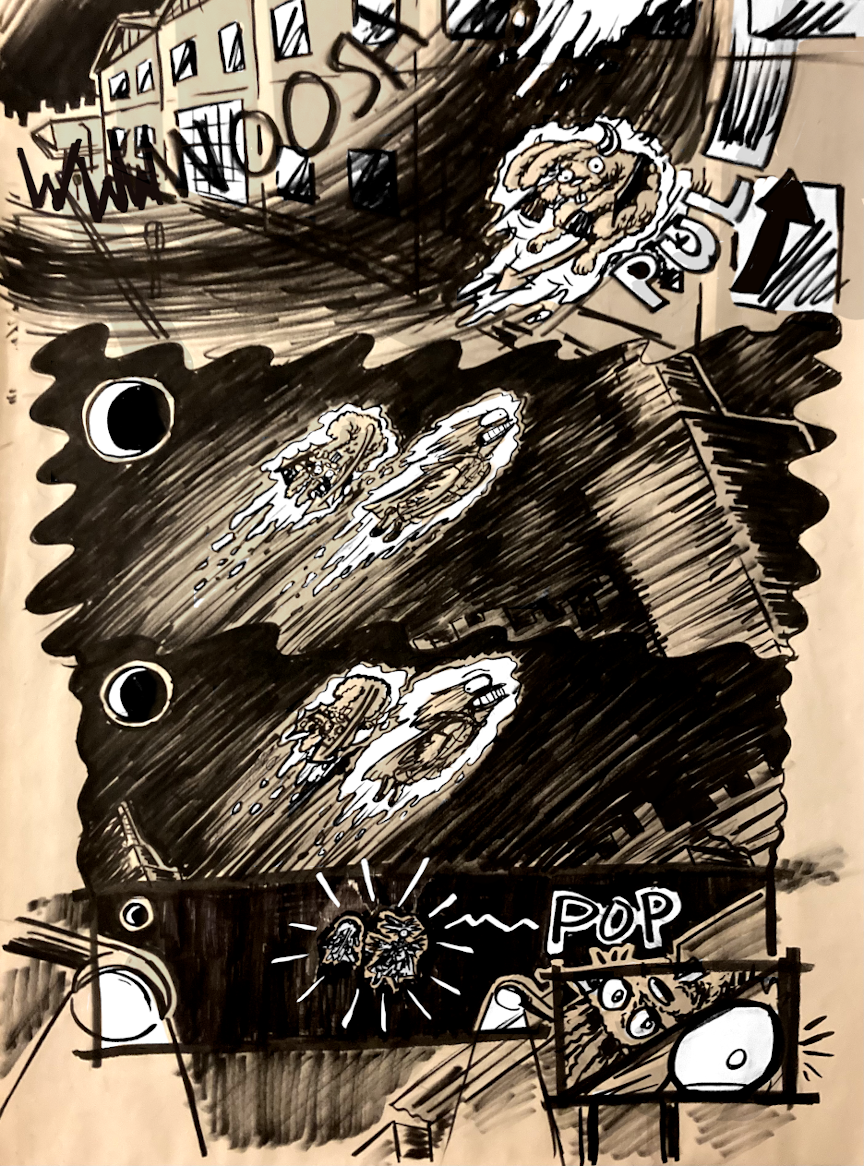 WWWWOOSH
PUL
POP